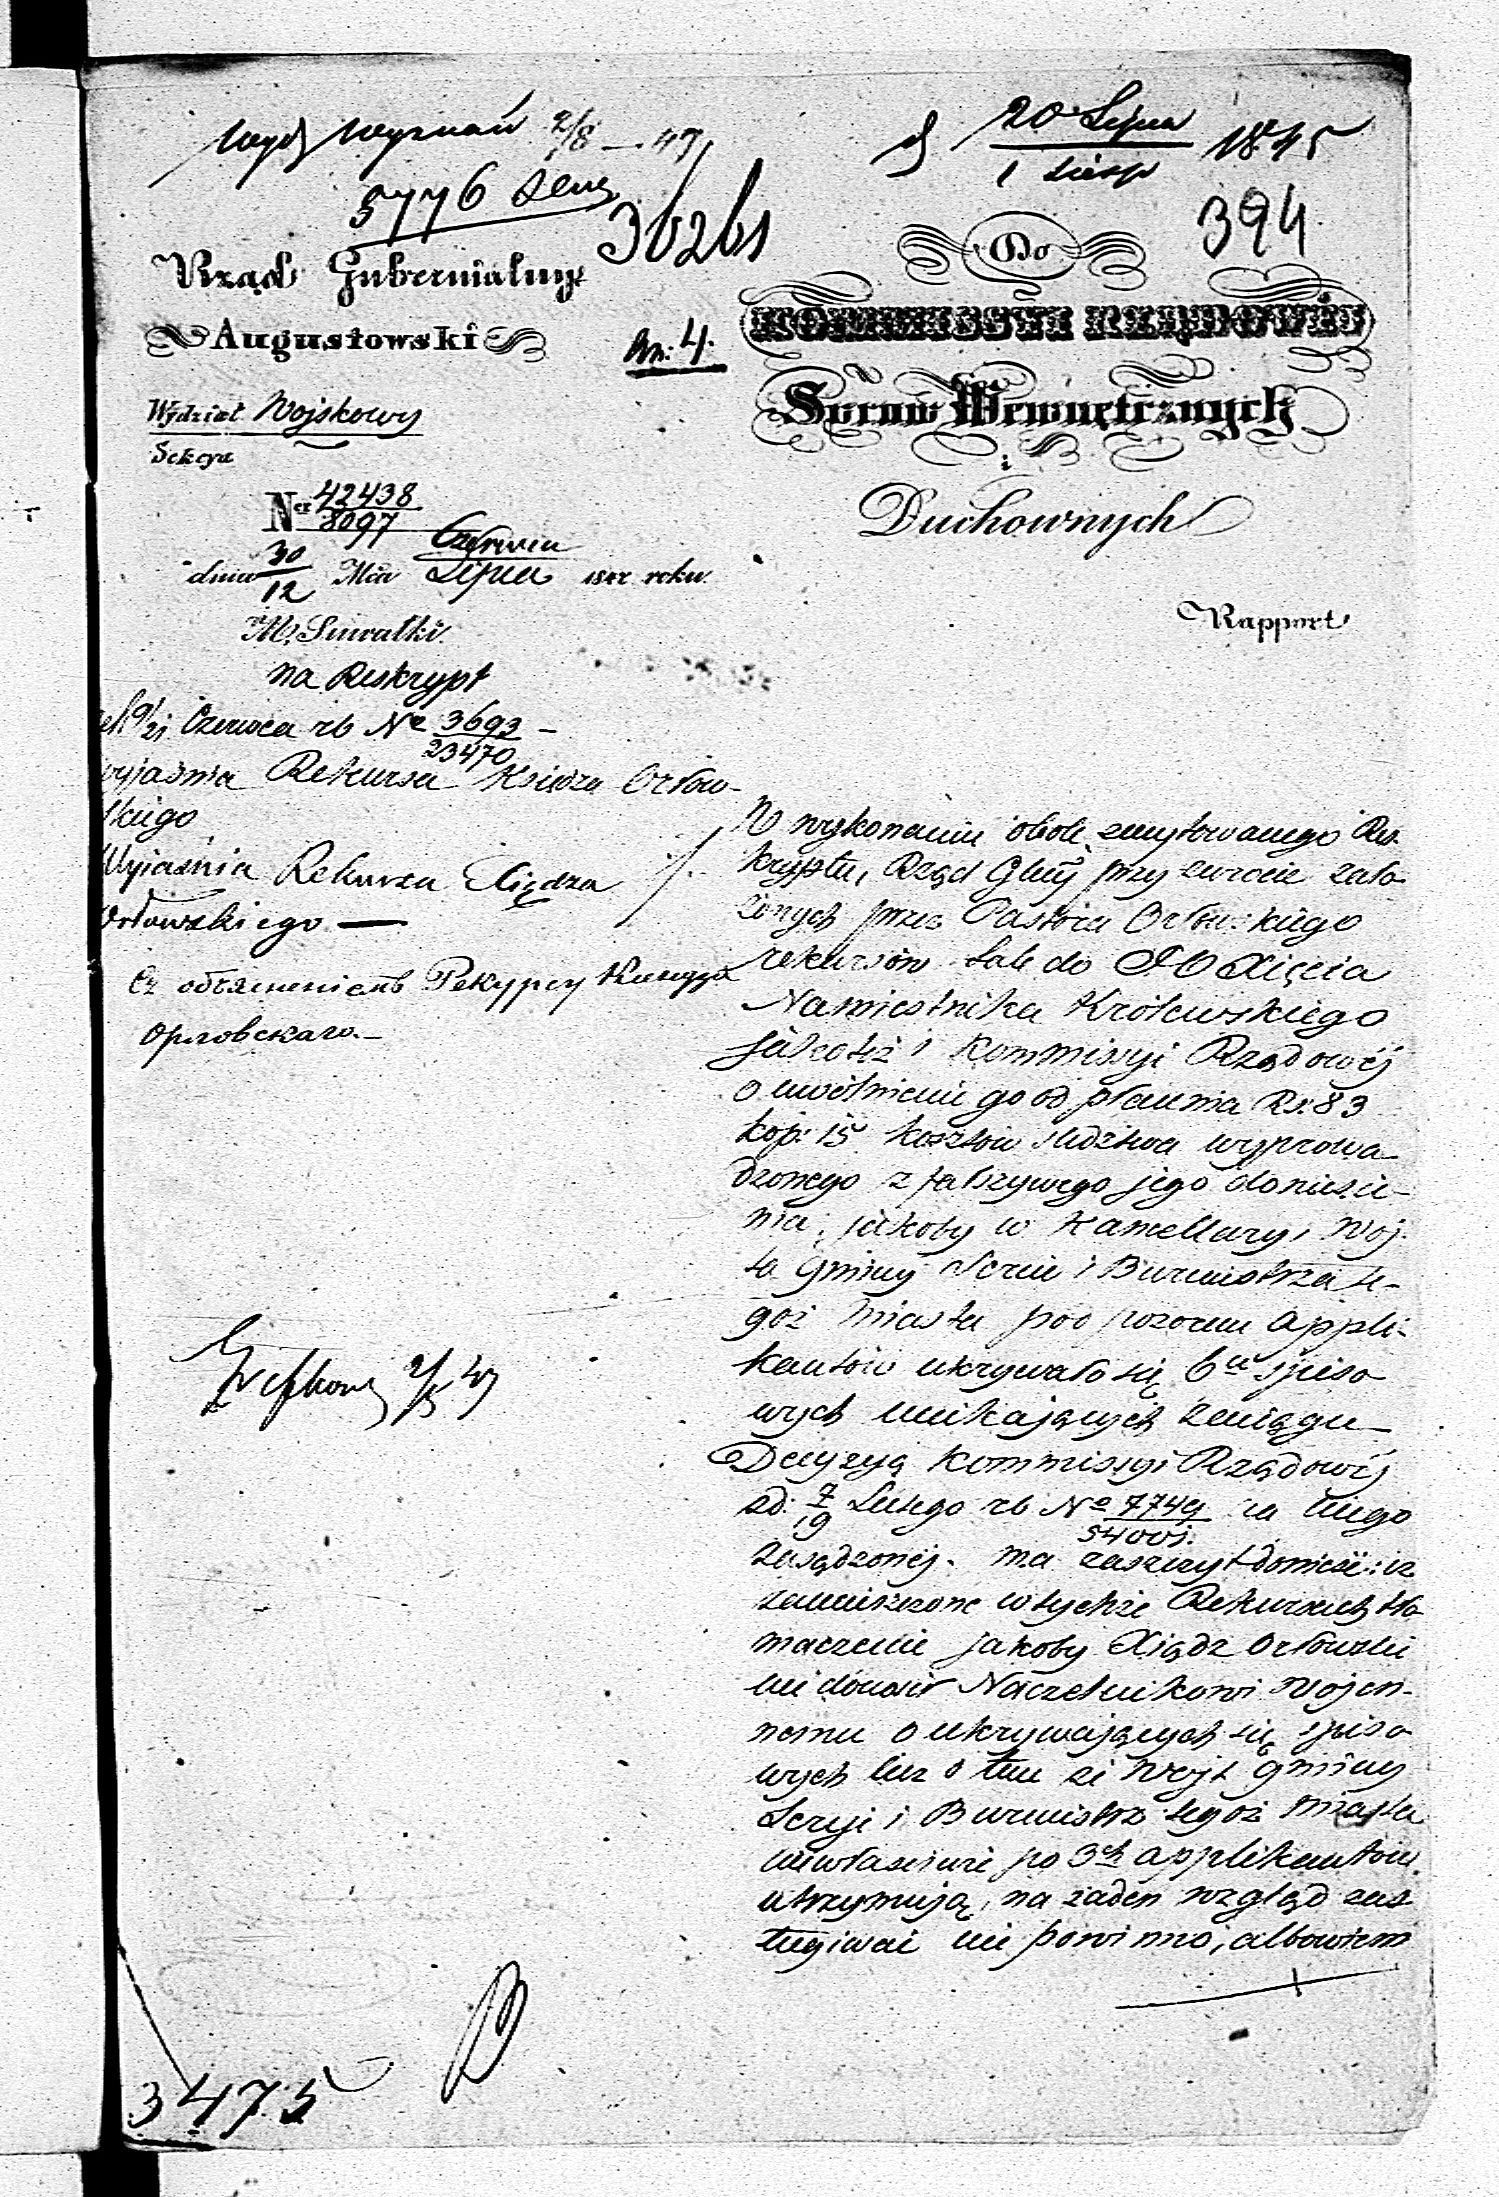 Wydz Wyznań 2/8 – 47
5776
36261
d 20 Lipca 1845
1 Sierp
394
Rząd Gubernialny
Augustowski
Do
KOMMISSYI RZĄDOWÉJ
Spraw Wewnętrznych
i
Duchownych
Rapport
Wydział Wojskowy
Sekcya
Ner 42438
8097
dnia 30 Mca Czerwca
12 Lipca 184 roku.
M. Suwałki.
na Reskrypt
9/21 Czerwca rb No 3693
23470
wyjaśnia Rekursa Księdza Orłow-
skiego
Wyjaśnia Rekursa Xiędza
Orłowskiego —
Съ объясненіемъ Рекурсу Ксендза
Орловскаго. —
W wykonaniu obok zacytowanego Res-
kryptu, Rząd Glny przy zwrocie zało-
żonych przez Pastora Orłowskiego
rekursów tak do JO Xięcia
Namiestnika Królewskiego
jakoteż i Kommissyi Rządowéj
o uwolnienie go od płacenia Rs. 83
kop: 15 kosztów śledztwa wyprowa-
dzonego z fałszywego jego doniesie-
nia, jakoby w Kancellaryi Wój-
ta Gminy Sereie i Burmistrza te-
goż miasta pod pozorem appli-
kantów ukrywało się 6u spiso-
wych unikających zaciągu
Decyzyą Kommissyi Rządowéj
zd: 7/19 Lutego rb No 7749 na niego
5400
zasądzonéj. ma zaszczyt donieść: iż
zamieszczone w tychże Rekursach tło-
maczenie jakoby Xiądz Orłowski
nie donosił Naczelnikowi Wojen-
nemu o ukrywających się spiso-
wych lecz o tem że Wójt Gminy
Sereje i Burmistrz tegoż miasta
niewłaściwie po 3ch applikantów
utrzymują, na żaden wzgląd zas-
ługiwać nie powinno, albowiem
3475